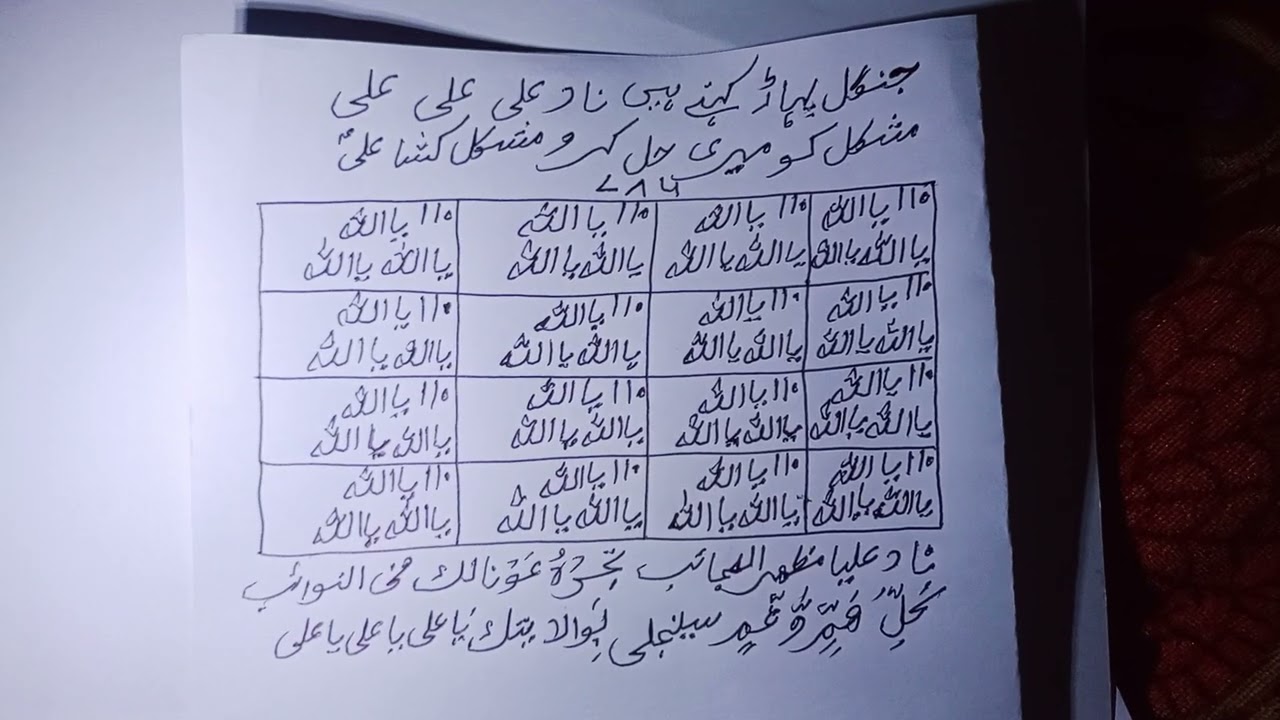 جنگل پہاڑ کہتے ہیں ناد علی علی علی
مشکل کو میری حل کرو مشکل کشا علیؑ
۷۸۶
۱۱۰ یا اللہ ۱۱۰ یا اللہ ۱۱۰ یا اللہ ۱۱۰ یا اللہ
یا اللہ یا اللہ یا اللہ یا اللہ یا اللہ یا اللہ یا اللہ یا اللہ
۱۱۰ یا اللہ ۱۱۰ یا اللہ ۱۱۰ یا اللہ ۱۱۰ یا اللہ
یا اللہ یا اللہ یا اللہ یا اللہ یا اللہ یا اللہ یا اللہ یا اللہ
۱۱۰ یا اللہ ۱۱۰ یا اللہ ۱۱۰ یا اللہ ۱۱۰ یا اللہ
یا اللہ یا اللہ یا اللہ یا اللہ یا اللہ یا اللہ یا اللہ یا اللہ
۱۱۰ یا اللہ ۱۱۰ یا اللہ ۱۱۰ یا اللہ ۱۱۰ یا اللہ
یا اللہ یا اللہ یا اللہ یا اللہ یا اللہ یا اللہ یا اللہ یا اللہ
ناد علیا مظہر العجائب تجدہُ عَوْنا لک فی النوائب
کُلِّ ھَمٍّ وَّ غَمٍّ سینجلی بِوَالایتک یَا علی یا علی یا علی